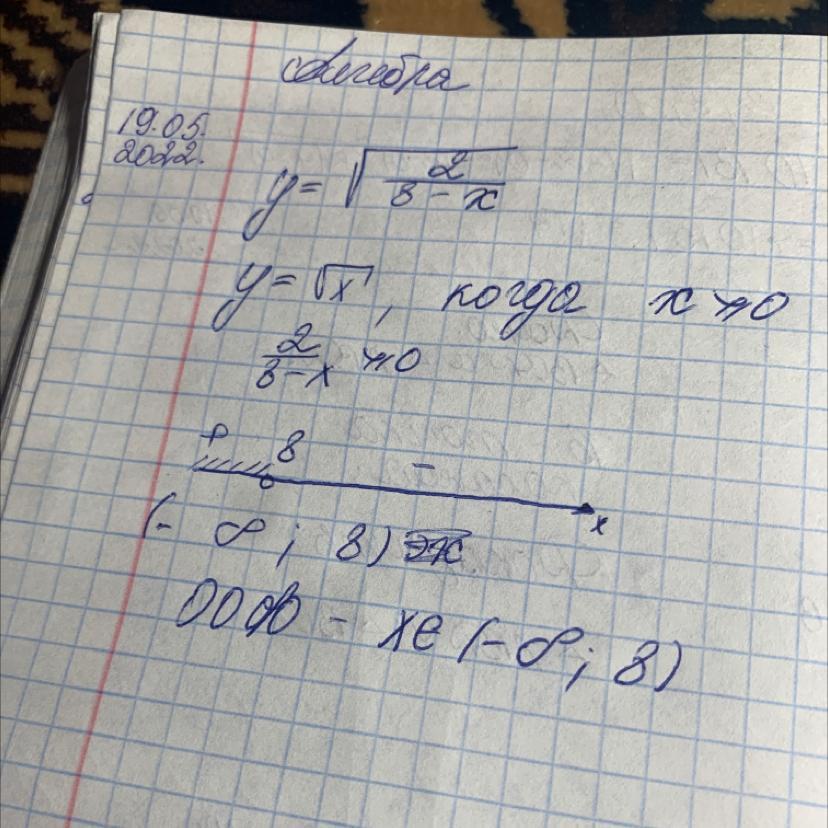 Алгебра
19.05.
2022.
y = √(2/(8 - x))
y = √x, когда x ⩾ 0
2/(8 - x) ⩾ 0
+ 8 -
x
(- ∞; 8)
ООФ - x∈(-∞; 8)